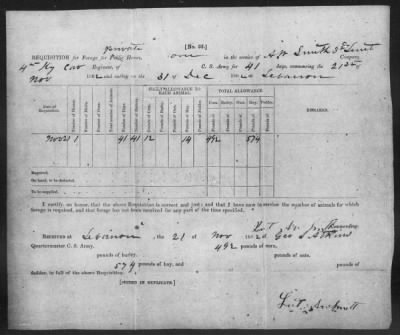 [No. 33.]
private
REQUISITION for Forage for Public Horses, one in the service of A W Smith 3d Lieut
4th Ky Cav Regiment, of C. S. Army for 41 days, commencing the 21st of
Nov 1862 and ending on the 31 of Dec 1862 at Lebanon
DAILY ALLOWANCE TO EACH ANIMAL. TOTAL ALLOWANCE.
Date of Requisition. Number of Horses. Number of Mules. Number of Oxen. Total number of Animals. Number of Days. Number of Rations. Pounds of Corn. Pounds of Barley. Pounds of Oats. Pounds of Hay. Pounds of Fodder. Corn. Barley. Oats. Hay. Fodder. REMARKS.
Nov 21 1 41 41 12 14 492 574
Required.
On hand, to be deducted.
To be supplied.
I certify, on honor, that the above Requisition is correct and just; and that I have now in service the number of animals for which
forage is required, and that forage has not been received for any part of the time specified.
Commanding.
RECEIVED AT Lebanon the 21 of Nov 1862 of Geo S
Quartermaster C. S. Army. 492 pounds of corn,
pounds of barley. pounds of oats.
574 pounds of hay, and pounds of
fodder, in full of the above Requisition.
[SIGNED IN DUPLICATE.]
Lieut